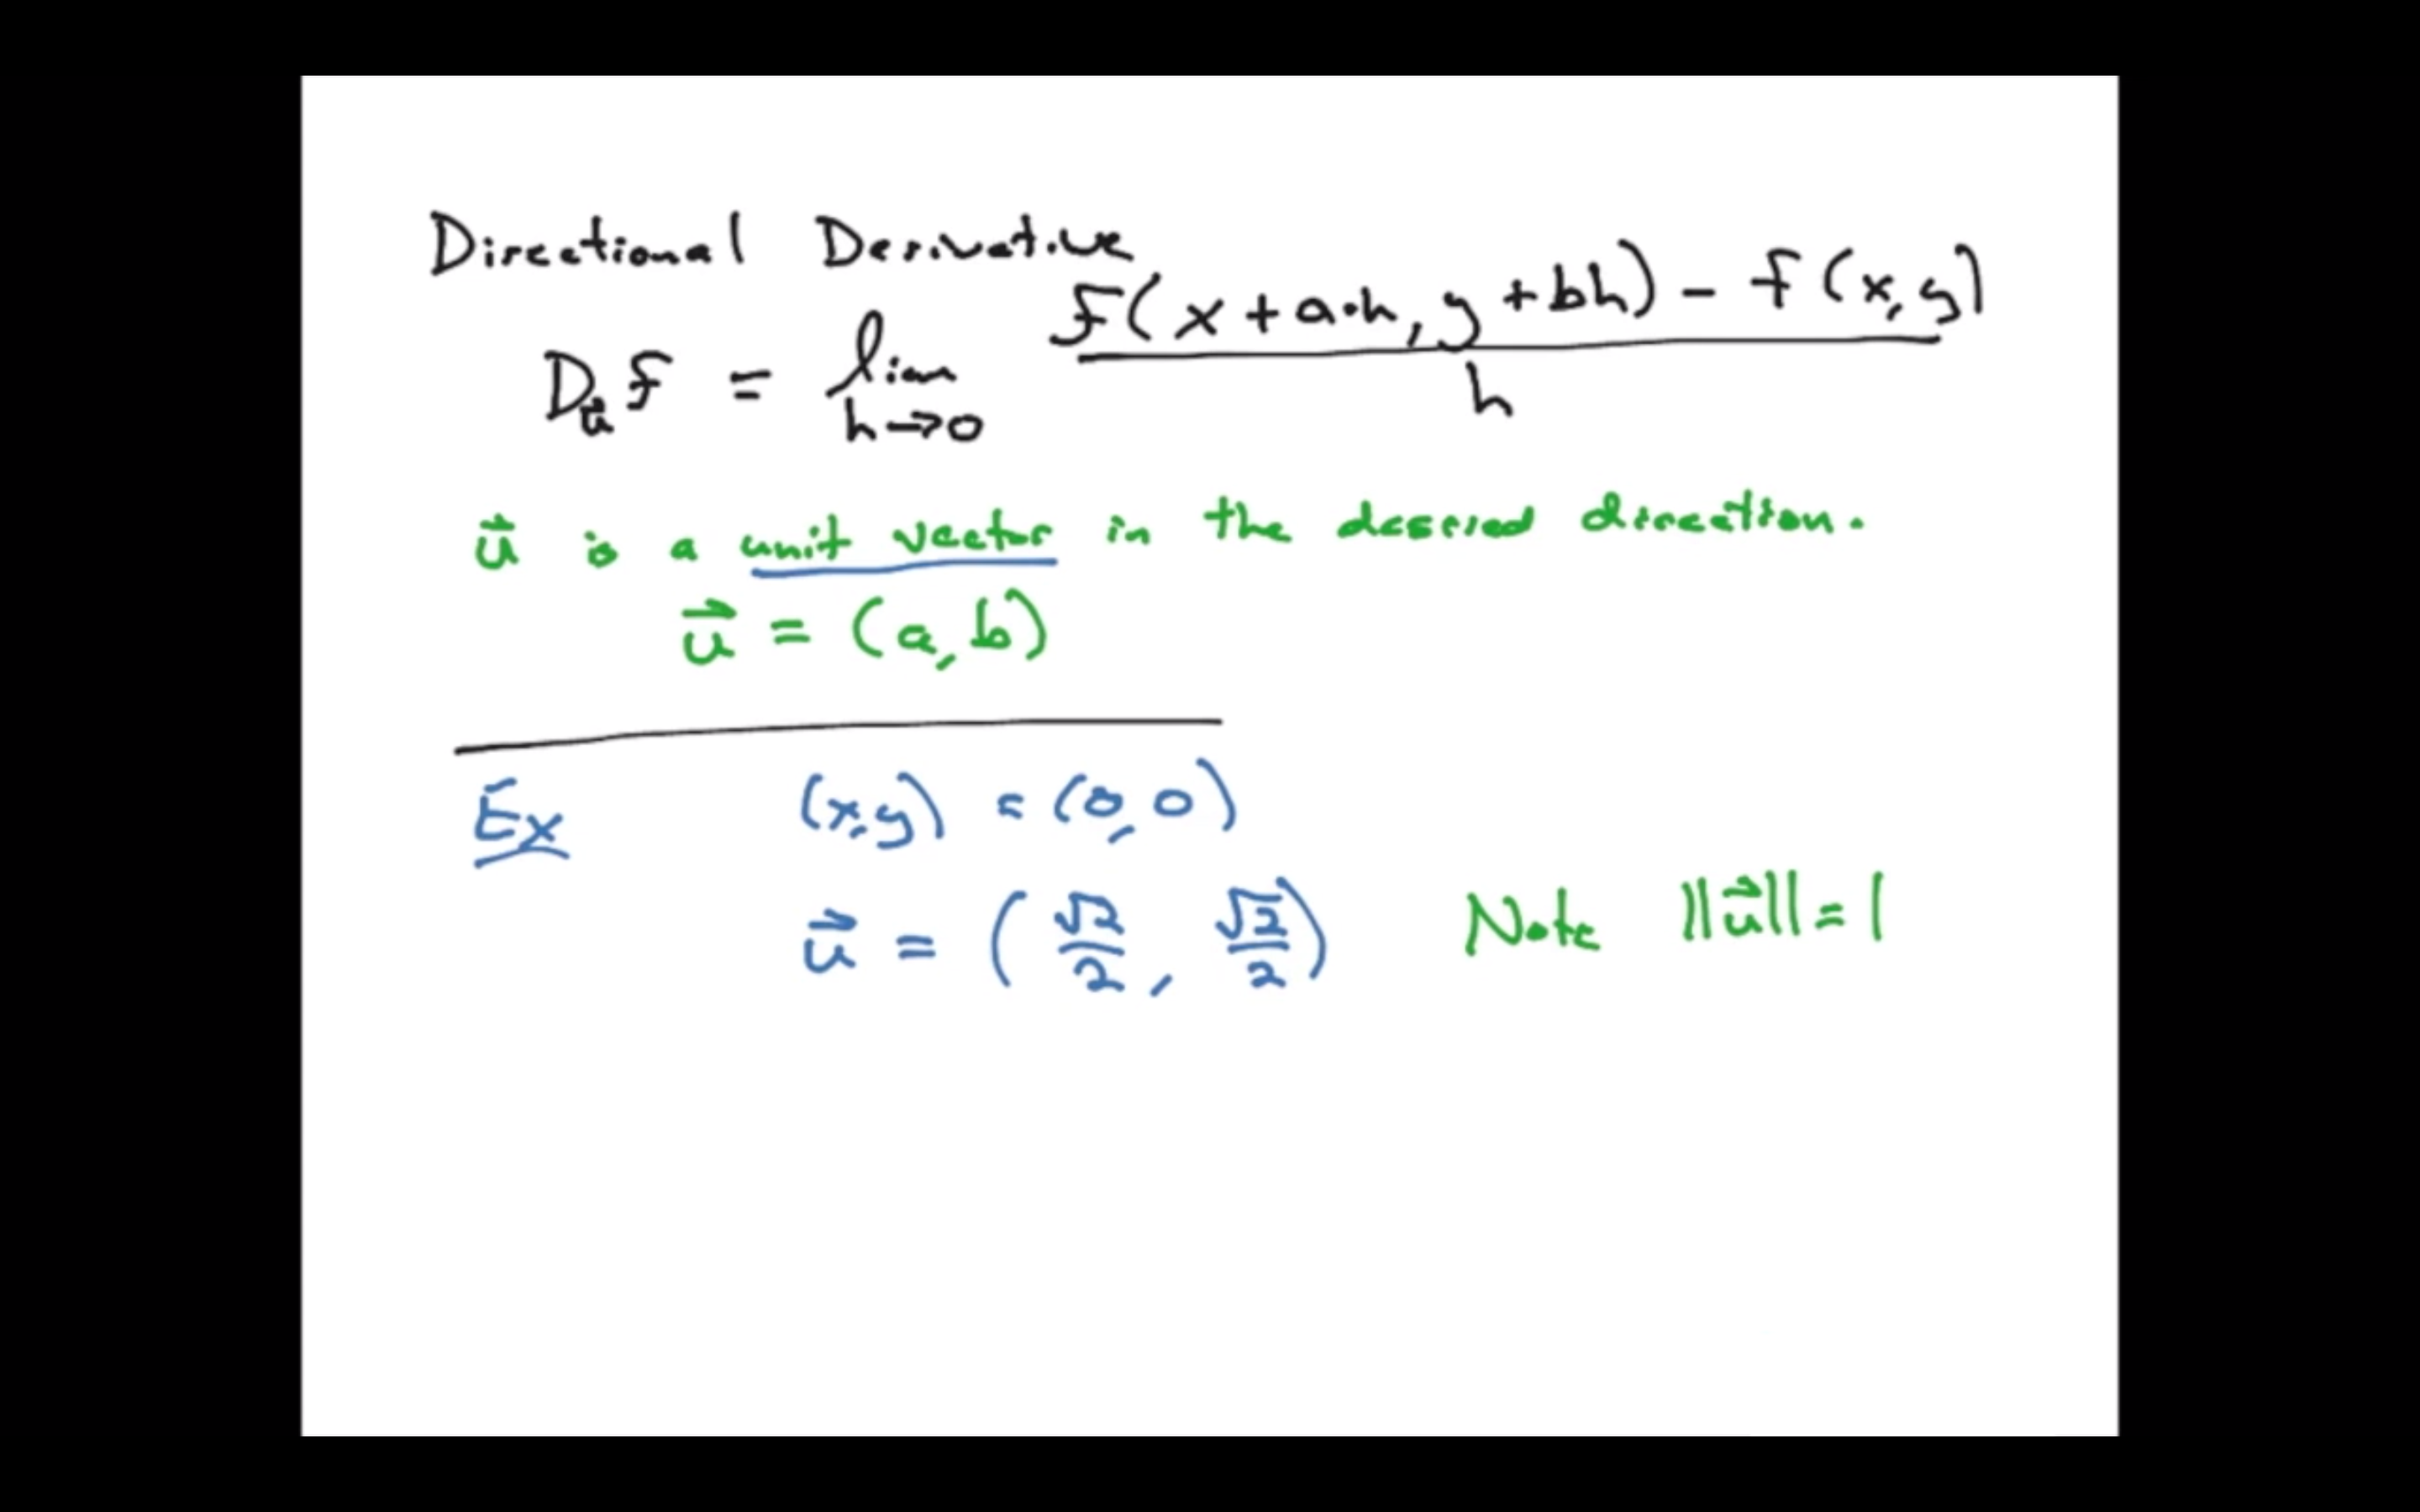 Directional Derivative
D_u⃗ f = lim h→0 f(x + a·h, y + bh) - f(x, y) / h
u⃗ is a unit vector in the desired direction.
u⃗ = (a, b)
Ex (x, y) = (0, 0)
u⃗ = (√2/2, √2/2) Note ||u⃗|| = 1